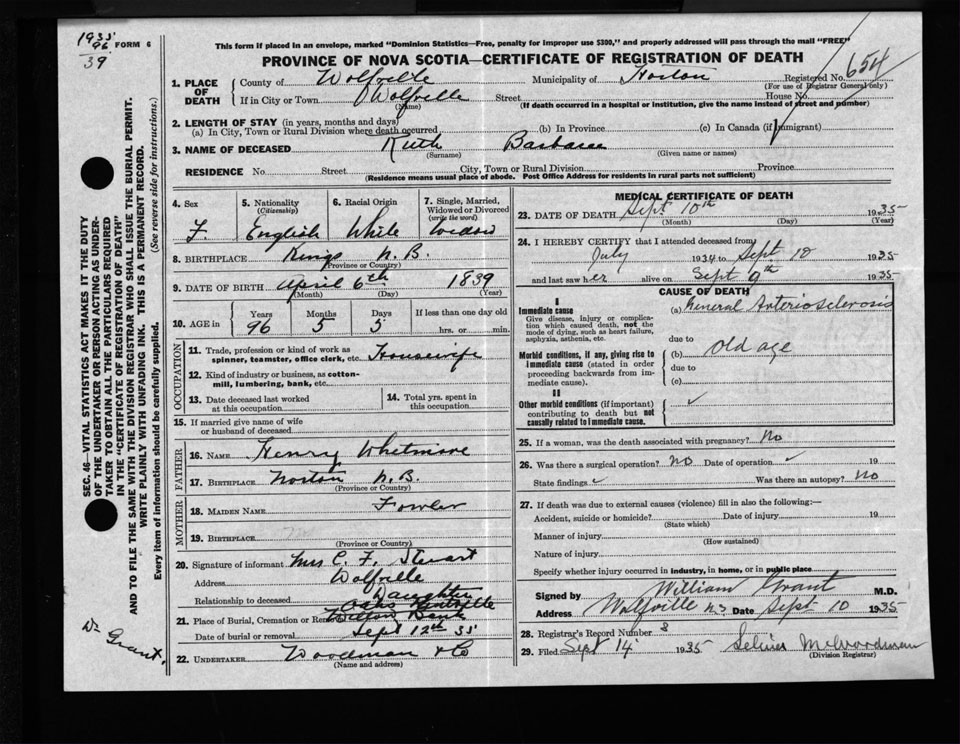 1935
96
39
FORM 6
This form if placed in an envelope, marked "Dominion Statistics—Free, penalty for improper use $300," and properly addressed will pass through the mail "FREE"
PROVINCE OF NOVA SCOTIA—CERTIFICATE OF REGISTRATION OF DEATH
1. PLACE OF DEATH
County of Wolfville Municipality of Horton Registered No. 654
(For use of Registrar General only)
If in City or Town Wolfville Street House No.
(Name) (If death occurred in a hospital or institution, give the name instead of street and number)
2. LENGTH OF STAY (in years, months and days)
(a) In City, Town or Rural Division where death occurred (b) In Province (c) In Canada (if immigrant)
3. NAME OF DECEASED Ruth Barbaree
(Surname) (Given name or names)
RESIDENCE No. Street City, Town or Rural Division Province
(Residence means usual place of abode. Post Office Address for residents in rural parts not sufficient)
4. Sex F.
5. Nationality (Citizenship) English
6. Racial Origin White
7. Single, Married, Widowed or Divorced (write the word) Widow
8. BIRTHPLACE Kings N.B.
(Province or Country)
9. DATE OF BIRTH April 6th 1839
(Month) (Day) (Year)
10. AGE in Years Months Days If less than one day old
96 5 5 hrs. or min.
OCCUPATION
11. Trade, profession or kind of work as spinner, teamster, office clerk, etc. Housewife
12. Kind of industry or business, as cotton-mill, lumbering, bank, etc.
13. Date deceased last worked at this occupation
14. Total yrs. spent in this occupation
15. If married give name of wife or husband of deceased
FATHER
16. NAME Henry Whitmore
17. BIRTHPLACE Norton N.B.
(Province or Country)
MOTHER
18. MAIDEN NAME Fowler
19. BIRTHPLACE
(Province or Country)
20. Signature of informant Mrs C. F. Stewart
Address Wolfville
Relationship to deceased Daughter
21. Place of Burial, Cremation or Oaks Kentville
Date of burial or removal Sept 12th 35
22. UNDERTAKER Woodman & Co
(Name and address)
MEDICAL CERTIFICATE OF DEATH
23. DATE OF DEATH Sept 10th 1935
(Month) (Day) (Year)
24. I HEREBY CERTIFY that I attended deceased from
July 1934 to Sept 10 1935
and last saw her alive on Sept 9th 1935
CAUSE OF DEATH
I
Immediate cause
Give disease, injury or complication which caused death, not the mode of dying, such as heart failure, asphyxia, asthenia, etc.
(a) General Anteriosclerosis
due to
Morbid conditions, if any, giving rise to immediate cause (stated in order proceeding backwards from immediate cause).
(b) Old age
due to
(c)
II
Other morbid conditions (if important) contributing to death but not causally related to immediate cause.
25. If a woman, was the death associated with pregnancy? No
26. Was there a surgical operation? No Date of operation 19
State findings Was there an autopsy? No
27. If death was due to external causes (violence) fill in also the following:—
Accident, suicide or homicide? Date of injury 19
(State which)
Manner of injury
(How sustained)
Nature of injury
Specify whether injury occurred in industry, in home, or in public place
Signed by William Grant M.D.
Address Wolfville N.S. Date Sept 10 1935
28. Registrar's Record Number 8
29. Filed Sept 14 1935
(Division Registrar)
SEC. 46—VITAL STATISTICS ACT MAKES IT THE DUTY
OF THE UNDERTAKER OR PERSON ACTING AS UNDER-
TAKER TO OBTAIN ALL THE PARTICULARS REQUIRED
IN THE "CERTIFICATE OF REGISTRATION OF DEATH"
AND TO FILE THE SAME WITH THE DIVISION REGISTRAR WHO SHALL ISSUE THE BURIAL PERMIT.
WRITE PLAINLY WITH UNFADING INK. THIS IS A PERMANENT RECORD.
Every item of information should be carefully supplied. (See reverse side for instructions.)
Dr Grant.